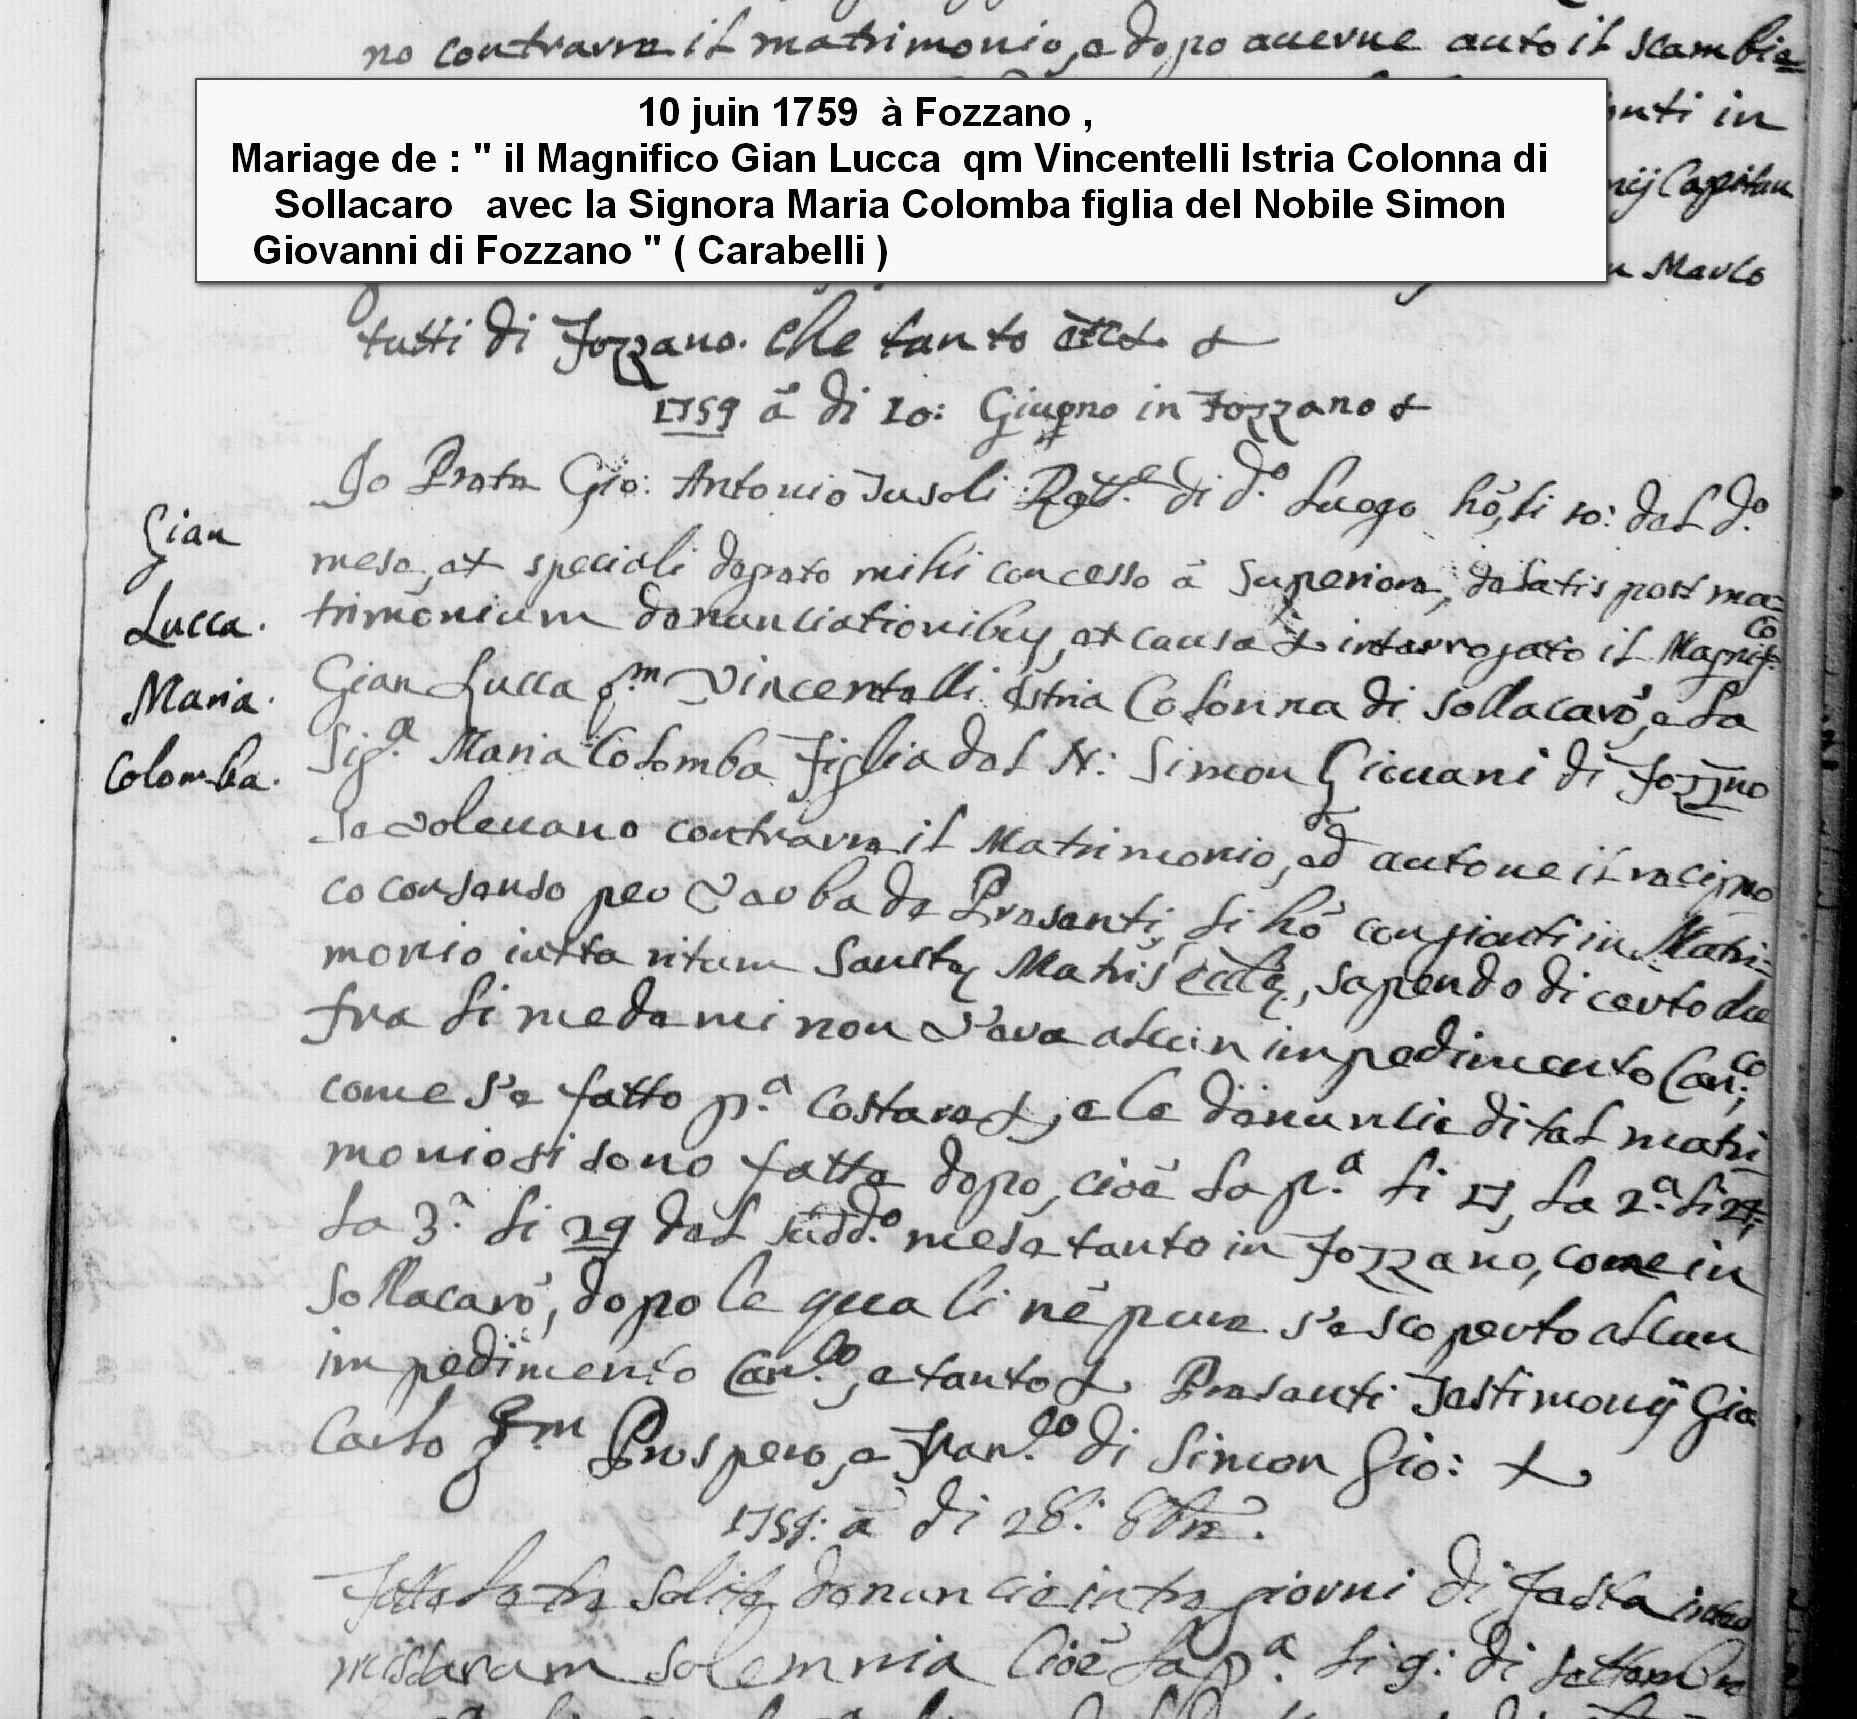 no contrarre il matrimonio, e dopo averne auto il scambie=
10 juin 1759 à Fozzano ,
Mariage de : " il Magnifico Gian Lucca qm Vincentelli Istria Colonna di
Sollacaro avec la Signora Maria Colomba figlia del Nobile Simon
Giovanni di Fozzano " ( Carabelli )
onti in
nij Capitan
Marco
tutti di Fozzano. Che tanto etct. &
1759 à di 10: Giugno in Fozzano &
Io Prete Gio: Antonio Susoli Rett.e di d.o Luogo hò, li 10: del d.o
mese, et speciali degreto mihi concesso à Superiore, delatis post ma=
trimonium denunciationibus, et causa & interrogato il Magnif.co
Gian Lucca q.m Vincentelli Istria Colonna di Sollacarò, e la
Sig.a Maria Colomba figlia del N: Simon Giovani di Fozzno
se volevano contrarre il Matrimonio, ed autone il recipro
co consenso per verba de Presenti, li hò congionti in Matri=
monio iuxta ritum Sanctę Matris Ecclę, sapendo di certo che
fra li medemi non v'era alcun impedimento Can:co,
come s'e fatto p.a costare &, e le denuncie di tal matri
monio si sono fatte dopo, cioè la p.a li 17, la 2.a li 24,
la 3.a li 29 del sudd.o mese tanto in Fozzano, come in
Sollacarò, dopo le quali nè pure s'e scoperto alcun
impedimento Can.co, e tanto & Presenti Testimonij Gio
Carlo q.m Prospero, e Fran.co di Simon Gio: &
Gian
Lucca.
Maria.
Colomba.
1759: à di 28: 8bre.
Fatte le tre solite denuncie in tre giorni di festa inter
missarum solemnia Cioè la p.a li 9: di settembre